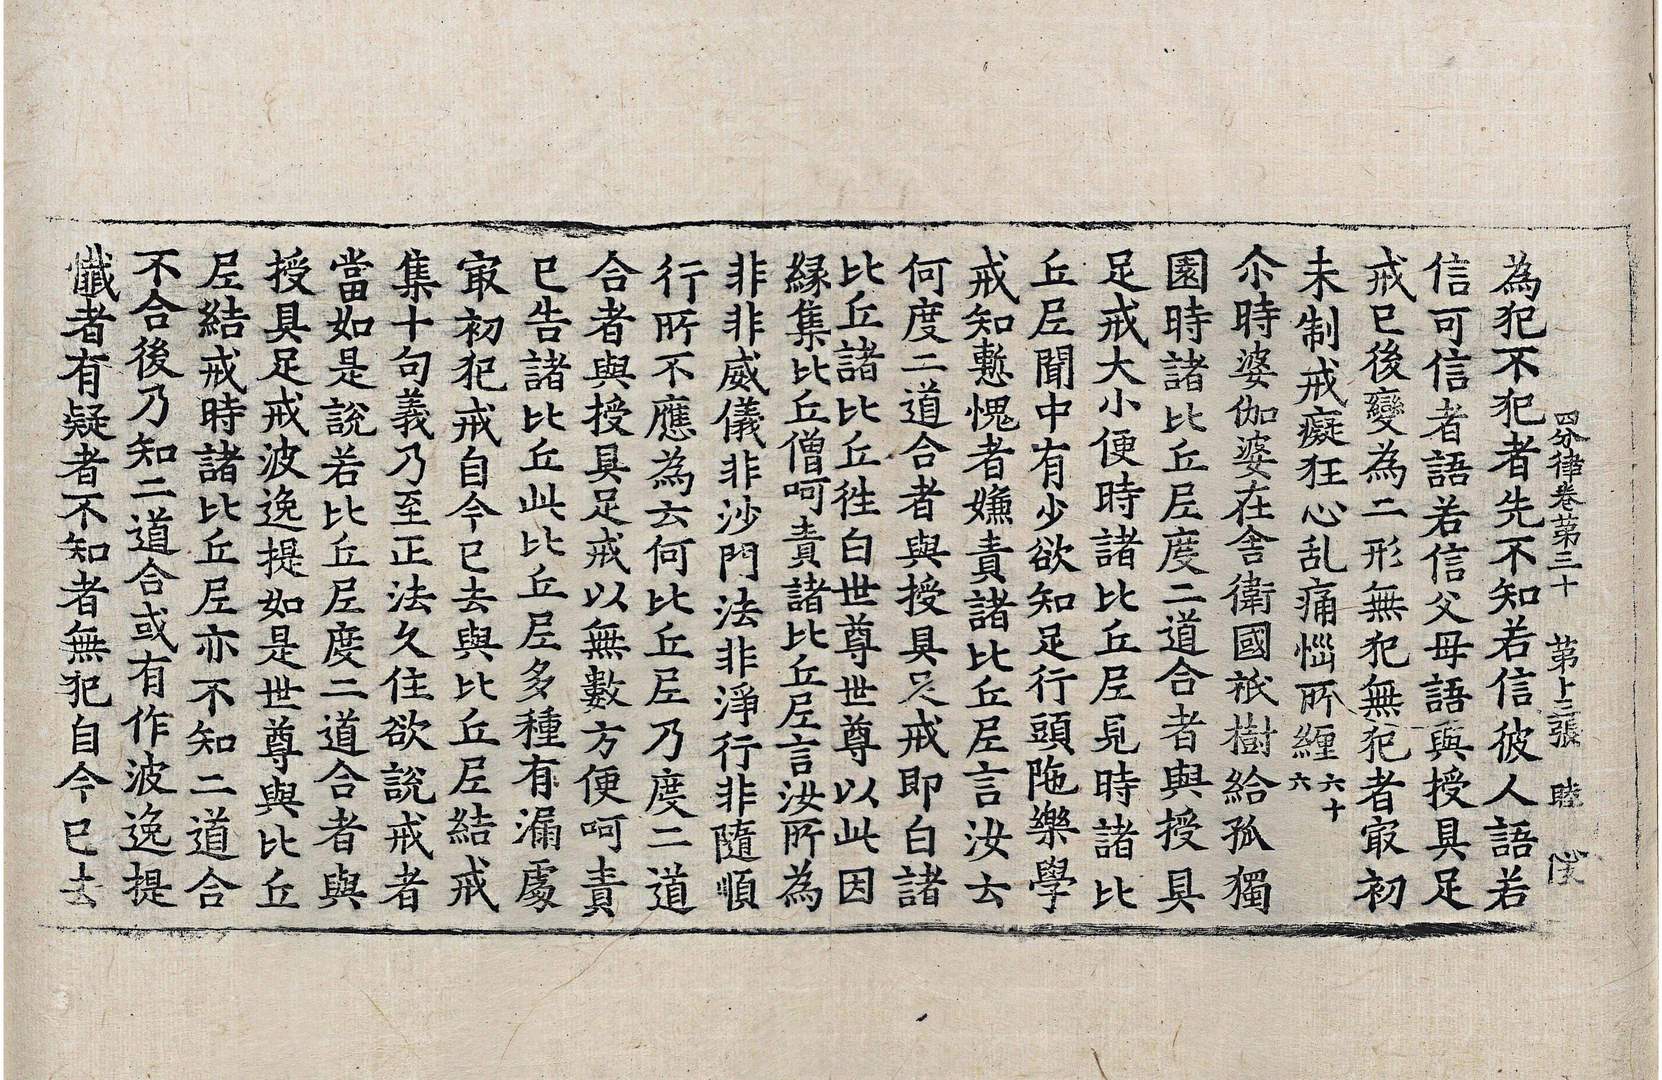 四分律卷第三十 第十三張 睦
為犯不犯者先不知若信彼人語若
信可信者語若信父母語與授具足
戒已後變為二形無犯無犯者㝡初
未制戒癡狂心乱痛惱所纏六十六
尒時婆伽婆在舍衛國祇樹給孤獨
園時諸比丘尼度二道合者與授具
足戒大小便時諸比丘尼見時諸比
丘尼聞中有少欲知足行頭陁樂學
戒知慙愧者嫌責諸比丘尼言汝云
何度二道合者與授具足戒即白諸
比丘諸比丘徃白世尊世尊以此因
緣集比丘僧呵責諸比丘尼言汝所為
非非威儀非沙門法非淨行非隨順
行所不應為云何比丘尼乃度二道
合者與授具足戒以無數方便呵責
已告諸比丘此比丘尼多種有漏處
㝡初犯戒自今已去與比丘尼結戒
集十句義乃至正法久住欲說戒者
當如是說若比丘尼度二道合者與
授具足戒波逸提如是世尊與比丘
尼結戒時諸比丘尼亦不知二道合
不合後乃知二道合或有作波逸提
懺者有疑者不知者無犯自今已去